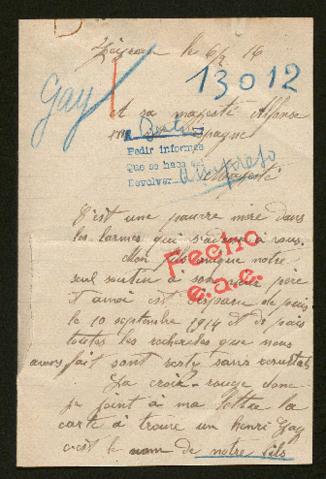 le 6/2 16
Gay
13012
A sa majesté Alfonse
Espagne
Pedir informes
Que se haga
Devolver
Majesté
C'est une pauvre mère dans
les larmes qui s'adresse à vous.
Mon fils unique notre
seul soutien à son père
et à moi est disparu depuis
le 10 septembre 1914 et depuis
toutes les recherches que nous
avons fait sont resté sans resultat
Fecho
La croix-rouge donc
je joint à ma lettre la
carte à trouvé un henri Gay
c'est le nom de notre fils